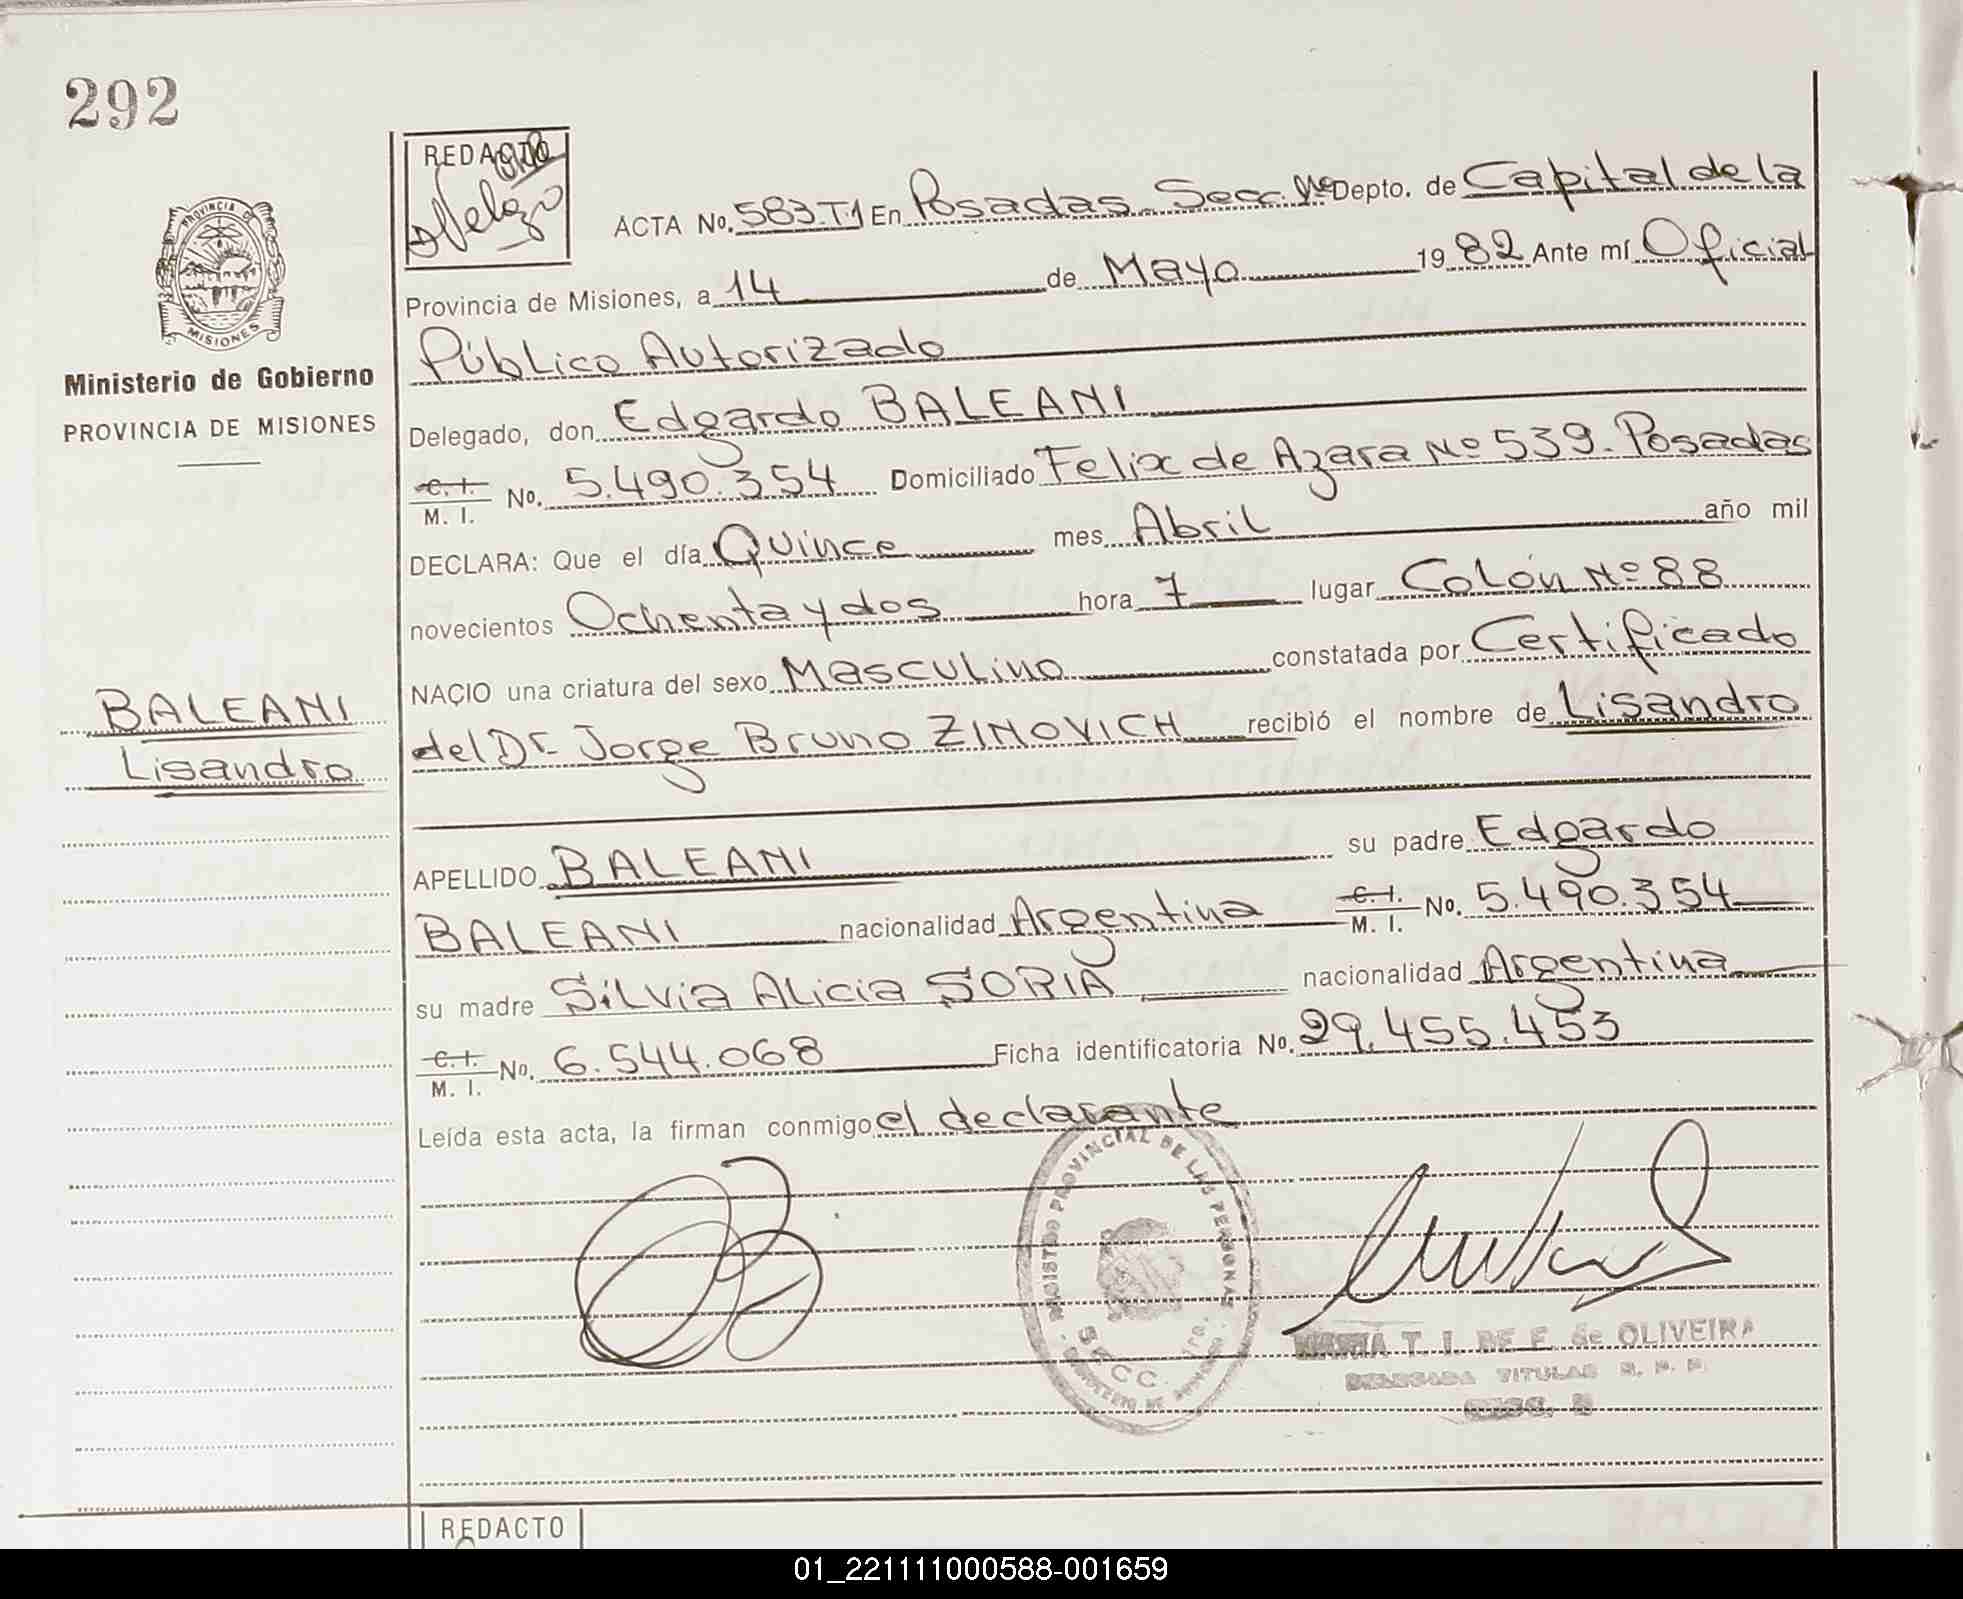 292
REDACTO
ACTA No. 583.T1 En Posadas Secc. 1ra Depto. de Capital de la
Provincia de Misiones, a 14 de Mayo 1982 Ante mí Oficial
Público Autorizado
PROVINCIA DE
MISIONES
Ministerio de Gobierno
PROVINCIA DE MISIONES
Delegado, don Edgardo BALEANI
C. I. M. I. No. 5.490.354 Domiciliado Felix de Azara Nº 539. Posadas
DECLARA: Que el día Quince mes Abril año mil
novecientos Ochenta y dos hora 7 lugar Colón Nº 88
NACIO una criatura del sexo Masculino constatada por Certificado
del Dr. Jorge Bruno ZINOVICH recibió el nombre de Lisandro
BALEANI
Lisandro
APELLIDO BALEANI su padre Edgardo
BALEANI nacionalidad Argentina C. I. M. I. No. 5.490.354
su madre Silvia Alicia SORIA nacionalidad Argentina
C. I. M. I. No. 6.544.068 Ficha identificatoria No. 29.455.453
Leída esta acta, la firman conmigo el declarante
REGISTRO PROVINCIAL DE LAS PERSONAS
SECC. 1ra.
MARIA T. I. DE F. de OLIVEIRA
DELEGADA TITULAR R. P. P.
REDACTO
01_221111000588-001659